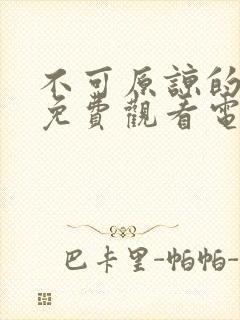 不可原諒的
免費觀看電
巴卡里-帕帕-